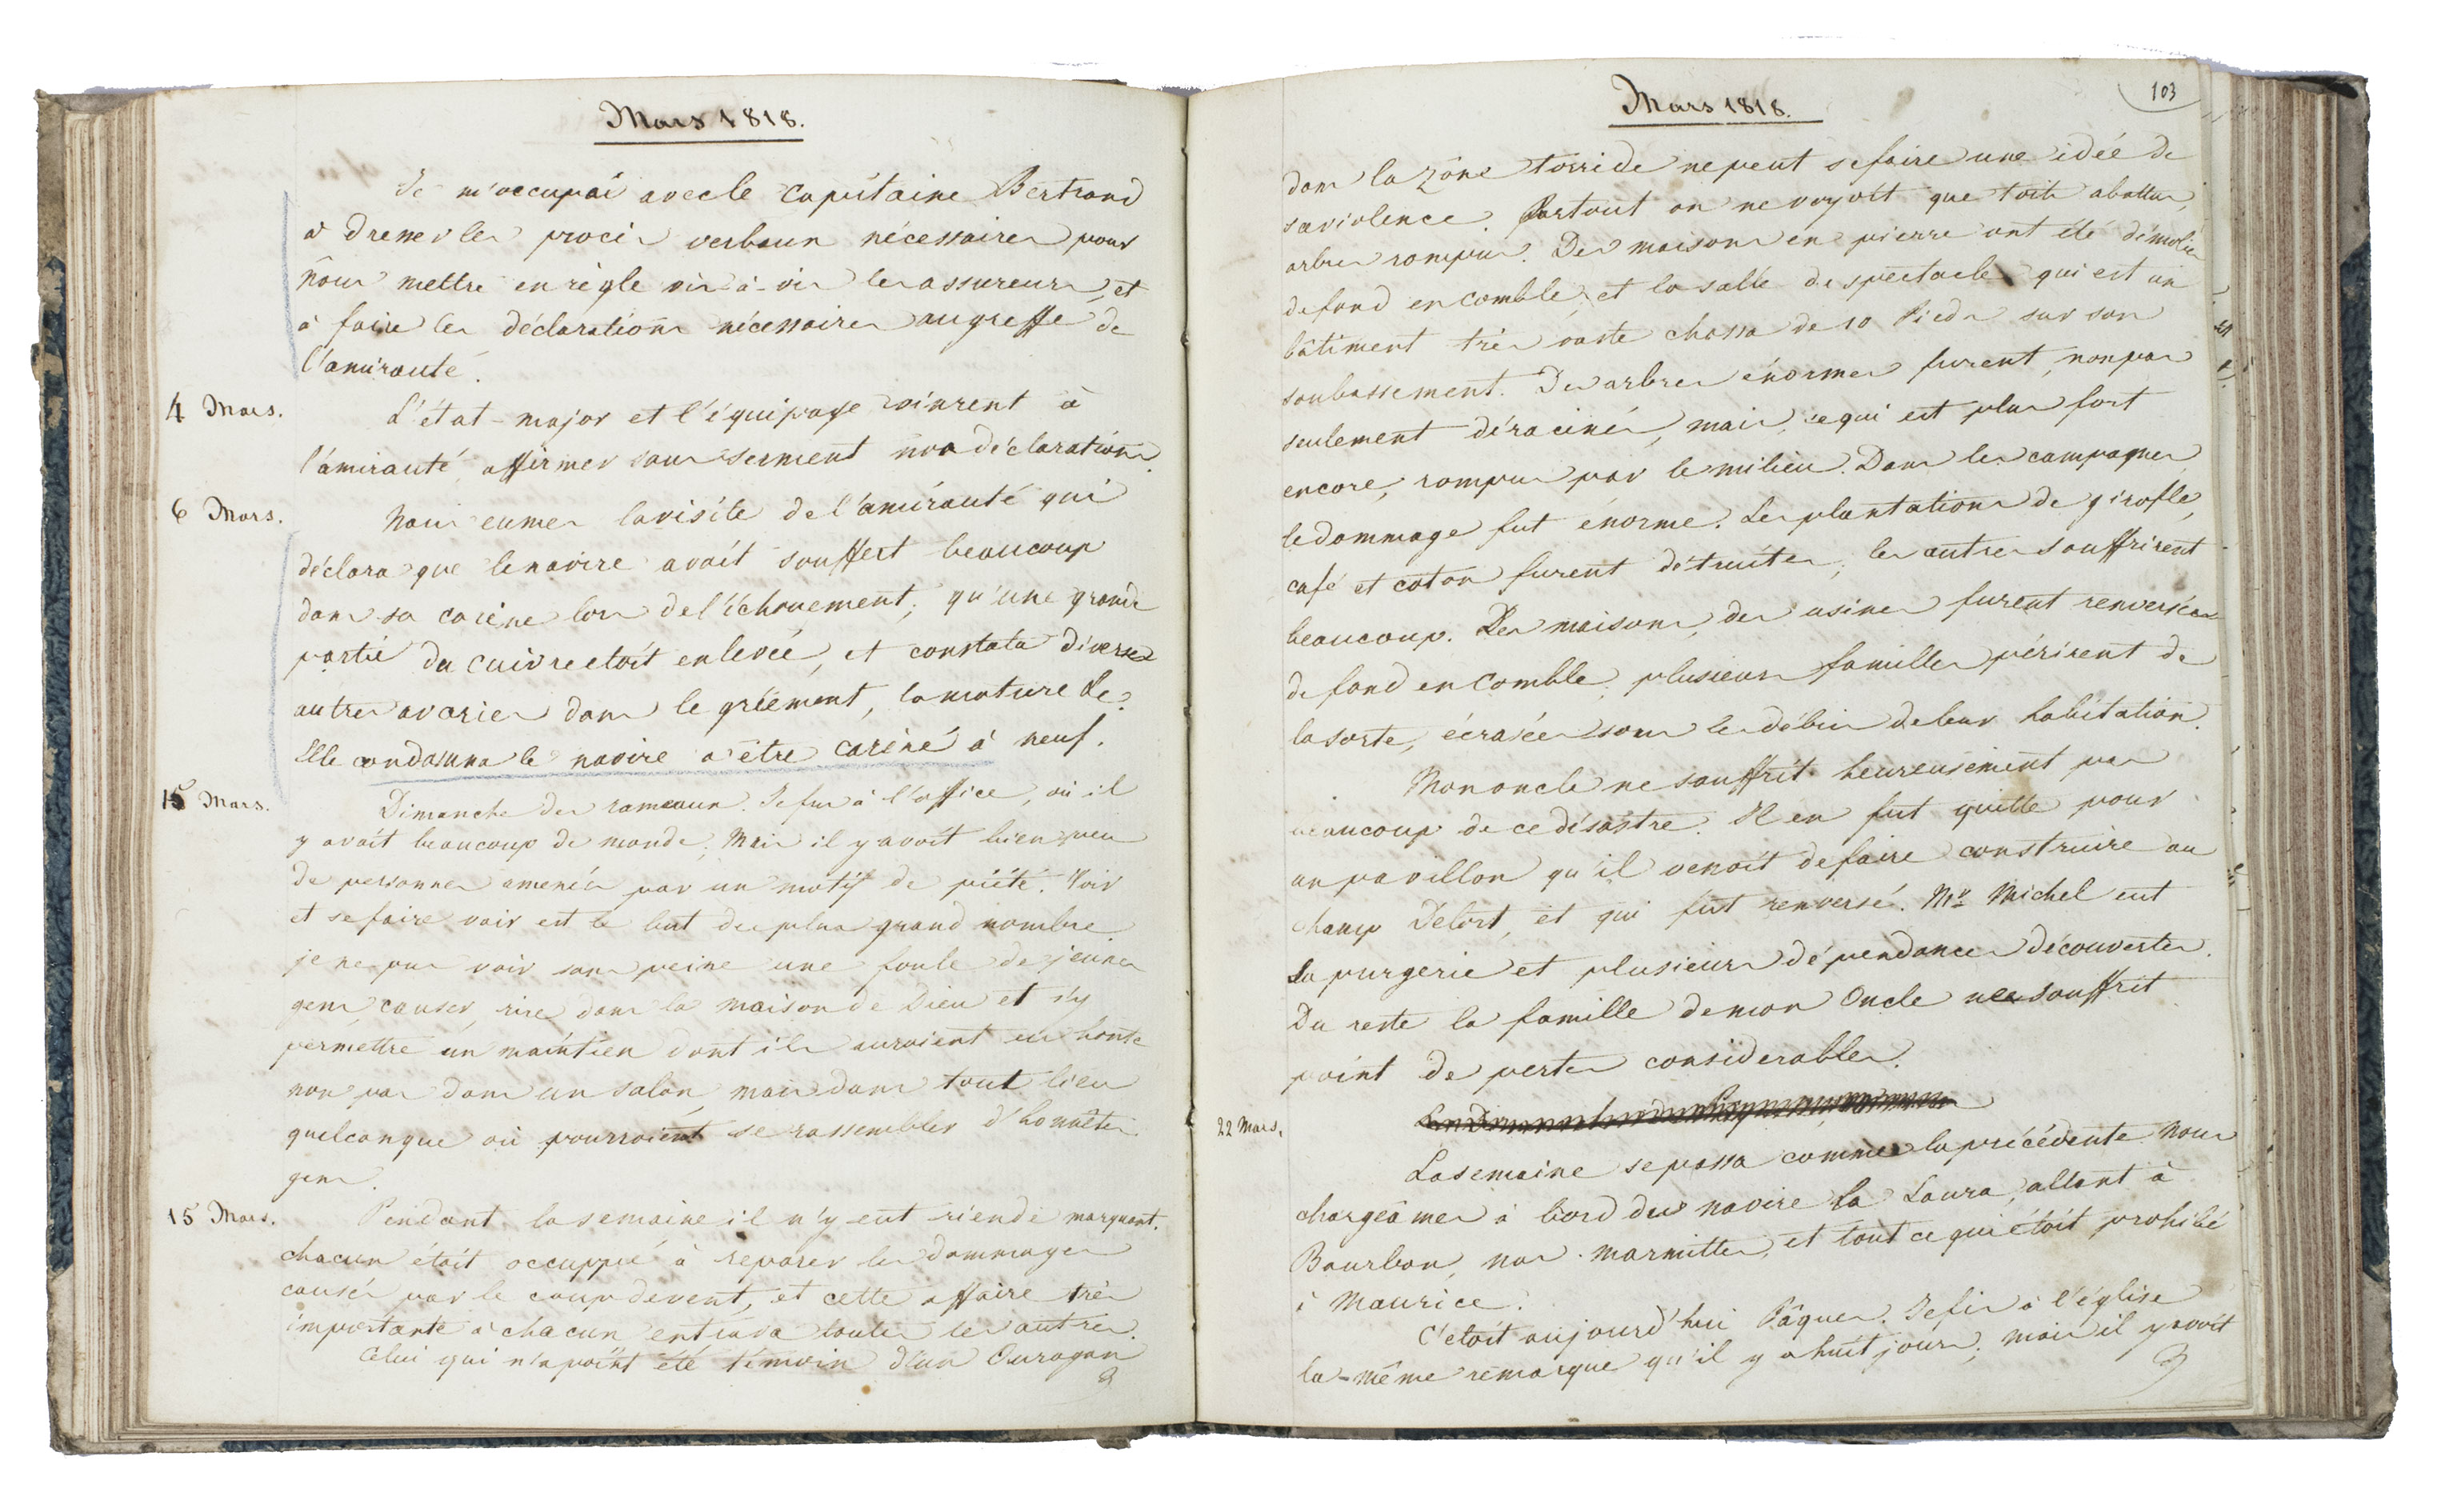 Mars 1818.
Je m'occupai avec le capitaine Bertrand
à dresser les procès verbaux nécessaires pour
nous mettre en règle vis-à-vis les assureurs, et
à faire les déclarations nécessaires au greffe de
l'amirauté.
4 Mars. L'état-major et l'équipage vinrent à
l'amirauté, affirmer sous serment nos déclarations.
6 Mars. Nous eumes la visite de l'amirauté qui
déclara que le navire avait souffert beaucoup
dans sa carène lors de l'échouement; qu'une grande
partie du cuivre etoit enlevée, et constata diverses
autres avaries dans le gréement, la mature &c.
Elle condamna le navire à être caréné à neuf.
15 Mars. Dimanche des rameaux. Je fus à l'office, où il
y avait beaucoup de monde; Mais il y avoit bien peu
de personnes amenées par un motif de piété. Voir
et se faire voir est le but du plus grand nombre.
je ne pus voir sans peine une foule de jeunes
gens, causer, rire dans la maison de Dieu et s'y
permettre un maintien dont ils auroient eu honte
non pas dans un salon, mais dans tout lieu
quelconque où pourroient se rassembler d'honnêtes
gens.
15 Mars. Pendant la semaine il n'y eut rien de marquant.
chacun étoit occuppé à reparer les dommages
causés par le coup de vent, et cette affaire très
importante à chacun entrava toutes les autres.
Celui qui n'a point été témoin d'un Ouragan
Mars 1818.
103
dans la zône torride ne peut se faire une idée de
sa violence. Partout on ne voyoit que toits abattus,
arbres rompus. Des maisons en pierre ont été démolies
de fond en comble, et la salle de spectacle qui est un
bâtiment très vaste chassa de 10 Pieds sur son
soubassement. Des arbres énormes furent, non pas
seulement déracinés, mais, ce qui est plus fort
encore, rompus par le milieu. Dans les campagnes
le dommage fut énorme. Les plantations de girofle,
café et coton furent détruites; les autres souffrirent
beaucoup. Des maisons, des usines furent renversées
de fond en comble; plusieurs familles périrent de
la sorte, écrasées sous les débris de leur habitation.
Mon oncle ne souffrit heureusement pas
beaucoup de ce désastre. Il en fut quitte pour
un pavillon qu'il venoit de faire construire au
champ Delort, et qui fut renversé. Mr Michel eut
sa purgerie et plusieurs dépendances découvertes.
Du reste la famille de mon Oncle ne souffrit
point de pertes considerables.
22 Mars. La semaine se passa comme la précédente. Nous
chargeâmes à bord du navire la Laura, allant à
Bourbon, nos marmittes, et tout ce qui étoit prohibé
à Maurice.
C'etoit aujourd'hui Pâques. Je fis à l'église
la-même remarque qu'il y a huit jours; mais il y avoit